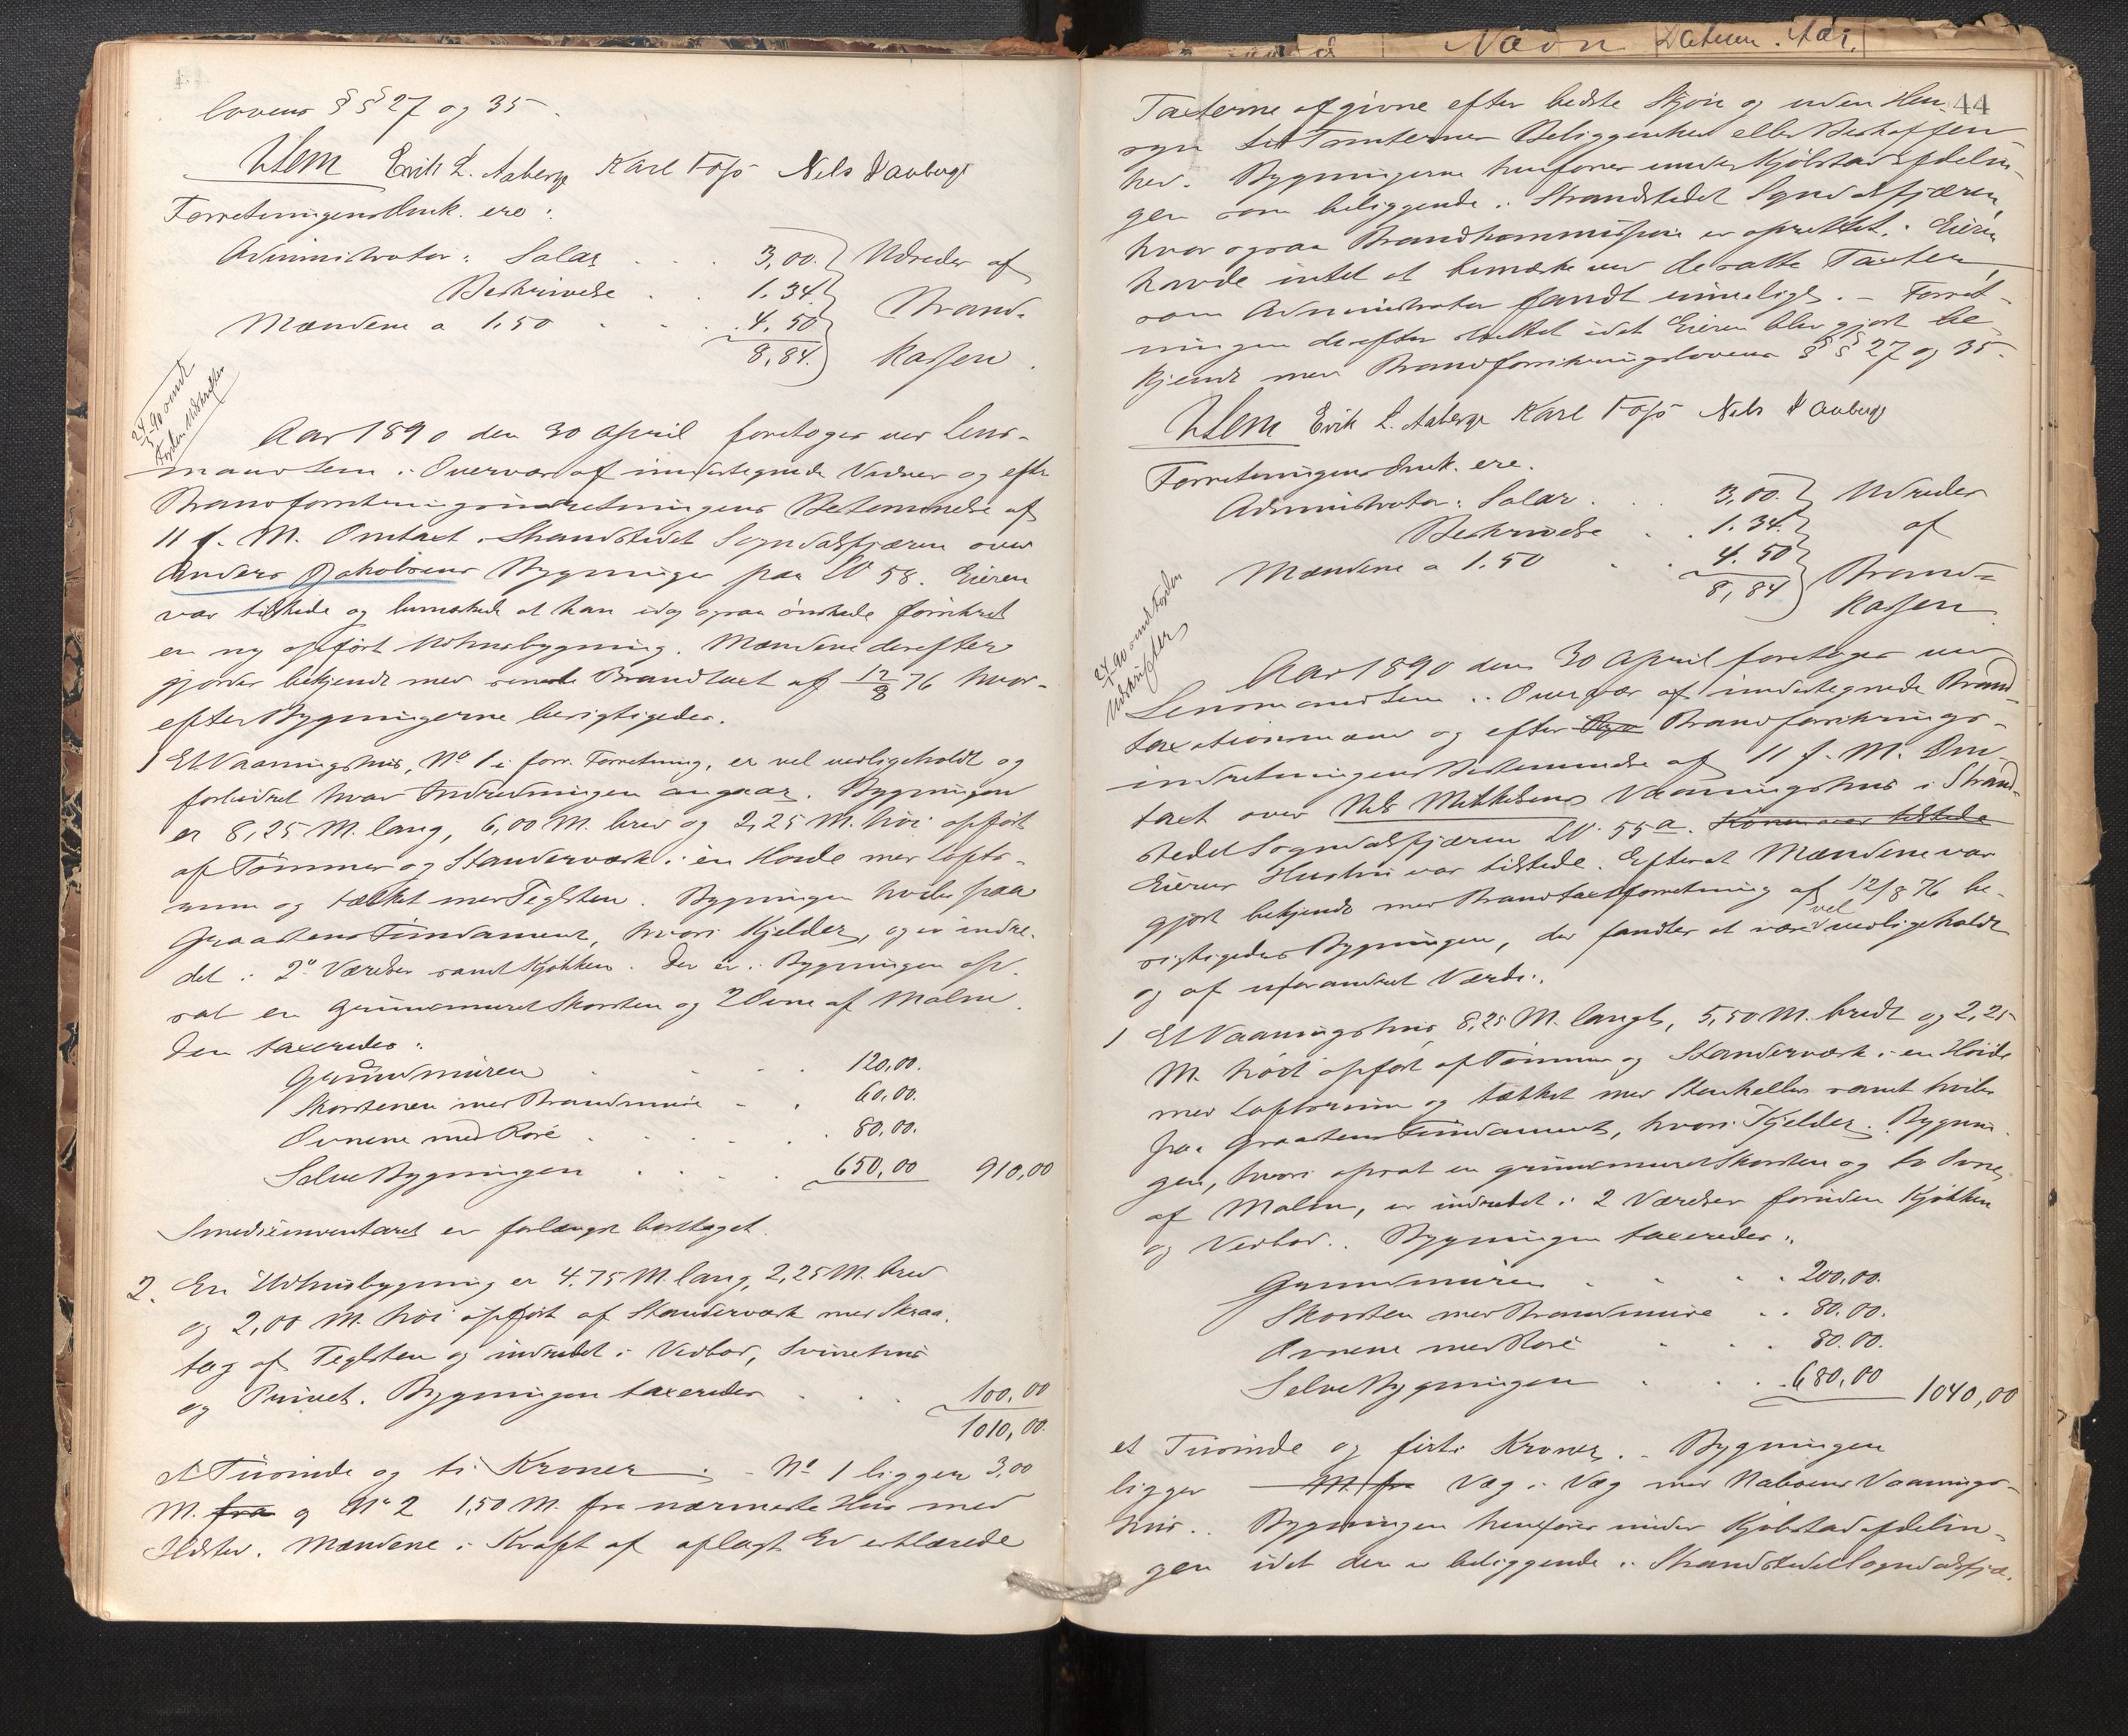 lovens §§ 27 og 35.
Ulem Erik L. Aaberge Karl Foss Nels Nauberg
Forretningens Omk. ere:
Administrator: Salar . . . 3,00. Udredes af
Beskrivelse . . 1.34. Brand-
Mændene a 1,50 . . . 4,50 Kassen.
8,84.
24/5 90 omdt
Aar 1890 den 30 April foretoges ved Lens-
mand Ulem i Overvær af undertegnede Vidner og efter
Brandforsikringsindretningens Bestemmelse af
11 f. M. Omtaxt i Strandstedet Sogndalsfjæren over
Anders Jakobsens Bygninger paa LN 58. Eieren
var tilstede og bemærkede at han idag ogsaa ønskede forsikret
en ny opført Udhusbygning. Mændene derefter
gjordes bekjendt med seneste Brandtaxt af 12/8 76 hvor-
efter Bygningerne besigtigedes.
1 Et Vaaningshus, No 1 i forr. Forretning, er vel vedligeholdt og
forbedret hvad Indredningen angaar. Bygningen
er 8,25 M. lang, 6,00 M. bred og 2,25 M. høi opført
af Tømmer og Standerværk i en Høide med Lofts-
rum og tækket med Teglsten. Bygningen hviler paa
Graastens Fundament, hvori Kjelder, og er indre-
det i 2 Værelser samt Kjøkken. Der er i Bygningen op-
sat en grundmuret Skorsten og 2 Ovne af Malm.
Den taxeredes:
Grundmuren . . . . 120,00.
Skorstenen med Brandmure . . 60,00.
Ovnene med Rør . . . . 80,00.
Selve Bygningen . . . . 650,00 910,00
Smedieinventaret er forlængst borttaget.
2. En Udhusbygning er 4,75 M. lang, 2,25 M. bred
og 2,00 M. høi opført af Standerværk med Skraa-
tag af Teglsten og indredet i Vedbod, Svinehus
og Privet. Bygningen taxeredes . . . 100,00
1010,00.
et Tusinde og ti Kroner. - No 1 ligger 3,00
M. fra og No 2 1,50 M. fra nærmeste Hus med
Ildsted. Mændene i Kraft af aflagt Ed erklærede
Navn Datum. Aar.
44
Taxterne afgivne efter bedste Skjøn og uden Hen-
syn til Tomternes Beliggenhed eller Beskaffen-
hed. Bygningerne henføres under Kjøbstadafdelin-
gen som beliggende i Strandstedet Sogndalsfjæren,
hvor ogsaa Brandkommission er oprettet. Eieren
havde intet at bemærke ved de satte Taxter,
som Administrator fandt rimelige. - Forret-
ningen derefter sluttet idet Eieren blev gjort be-
kjendt med Brandforsikringslovens §§ 27 og 35.
Ulem Erik L. Aaberge Karl Foss Nels Nauberg
Forretningens Omk. ere.
Administrator: Salar . . . 3,00. Udredes
Beskrivelse . . 1.34. af
Mændene a 1.50 . . 4.50 Brand-
8,84 Kassen.
Aar 1890 den 30 April foretoges ved
Lensmand Ulem i Overvær af undertegnede Brand-
taxationsmænd og efter Brandforsikrings-
indretningens Bestemmelse af 11 f. M. Om-
taxt over Nels Mikkelsens Vaaningshus i Strand-
stedet Sogndalsfjæren LN. 55 a. Konen var tilstede
Eierens Hustru var tilstede. Efterat Mændene var
gjort bekjendt med Brandtaxtforretning af 12/8 76 be-
sigtigedes Bygningen, der fandtes at være vel vedligeholdt
og af uforandret Værdi.
1 Et Vaaningshus, 8,25 M. langt, 5,50 M. bredt og 2,25
M. høit opført af Tømmer og Standerværk i en Høide
med Loftsrum og tækket med Stenheller samt hviler
paa Graastens Fundament, hvori Kjelder. Bygnin-
gen, hvori opsat en grundmuret Skorsten og to Ovne
af Malm, er indredet i 2 Værelser foruden Kjøkken
og Vedbod. Bygningen taxeredes:
Grundmuren . . . . 200,00.
Skorsten med Brandmure . . 80.00.
Ovnene med Rør . . . 80.00.
Selve Bygningen . . . 680,00 1040,00
et Tusinde og firti Kroner. - Bygningen
ligger M. fra Væg i Væg med Naboens Vaanings-
hus. Bygningen henføres under Kjøbstadafdelin-
gen idet den er beliggende i Strandstedet Sogndalsfjæ-